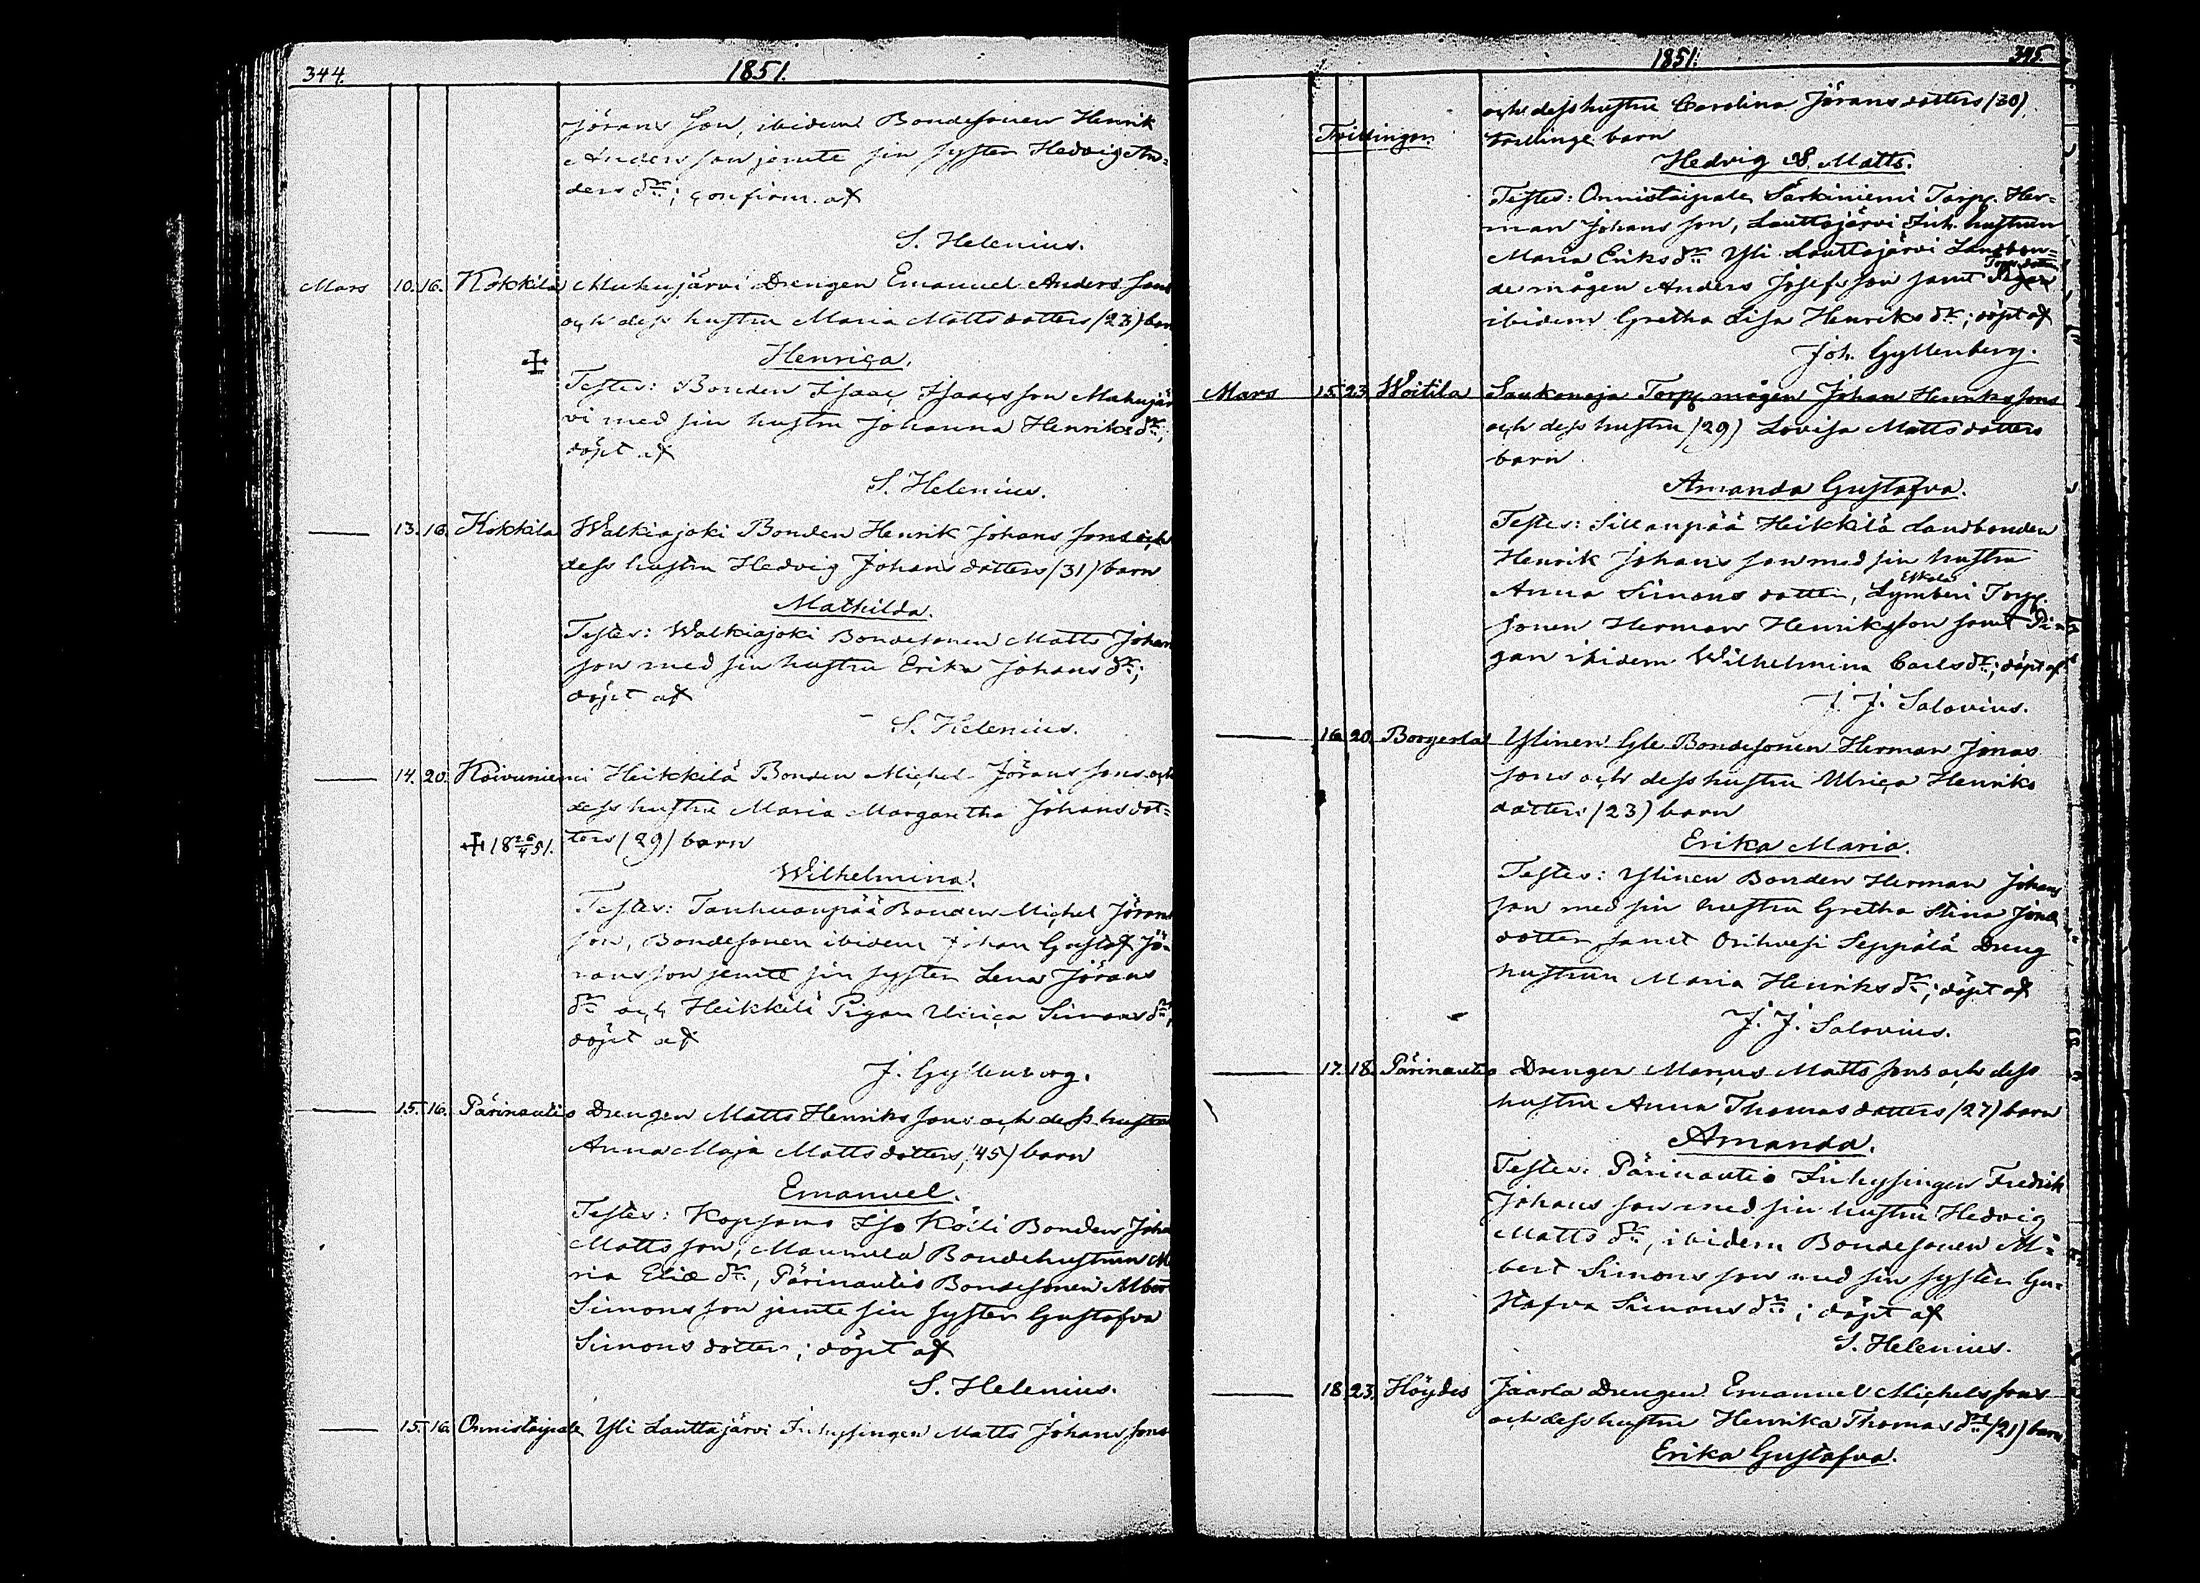 344.
1851.
Jörans Son, ibidem Bondesonen Henrik
Anders son jemte sin syster Hedvig An-
ders dr; confirm. af
S. Helenius.
Mars 10. 16. Kokkila Mukujärvi Drengen Emanuel Anders Sons
och dess hustru Maria Mattsdotters (23) barn
Henrica.
Testes: Bonden Isaac Isaacsson Mahujär
vi med sin hustru Johanna Henriks dr;
döpt af
S. Helenius.
13. 16. Kokkila Walkiajoki Bonden Henrik Johans Sons och
dess hustru Hedvig Johans dotters (31) barn
Mathilda.
Testes: Walkiajoki Bondesonen Matts Johan
son med sin hustru Erika Johans dr;
döpt af
S. Helenius.
14. 20. Koivuniemi Heikkilä Bonden Michel Jörans Sons och
dess hustru Maria Margaretha Johans dot=
✠ 18 26/4 51. ters (29) barn
Wilhelmina.
Testes: Tanhuanpää Bonden Michel Jörans
son, Bondesonen ibidem Johan Gustaf Jö-
rans son jemte sin syster Lena Jörans
dr och Heikkilä Pigan Ulrica Simons dr;
döpt af
J. Gyllenberg.
15. 16. Pärinautio Drengen Matts Henriks Sons och dess hustru
Anna Maja Matts dotters, (45) barn
Emanuel.
Testes: Kopsamo Iso Köili Bonden Joha
Matts son, Maunula Bondehustrun M
ria Eliæ dr, Pärinautio Bondesonen Albert
Simons son jemte sin syster Gustafva
Simons dotter; döpt af
S. Helenius.
15. 16. Onnistaipale Yli Lauttajärvi Inhysingen Matts Johans Sons
1851.
345.
och dess hustru Carolina Jörans dotters (30)
Trillingar. trillinge barn
Hedvig & Matts.
Testes: Onnistaipale Särkiniemi Torp. Her-
man Johans son, Lauttajärvi Inh. hustrun
Maria Eriks dr Yli Lauttajärvi Landbon=
de mågen Anders Josefs son samt Pigan
ibidem Gretha Lisa Henriks dr; döpt af
Joh. Gyllenberg.
Mars 15. 23. Woitila Saukonoja Torp. mågen Johan Henriks sons
och dess hustru (29) Lovisa Matts dotters
barn
Amanda Gustafva.
Testes: Sillanpää Heikkilä Landbonden
Henrik Johans son med sin hustru
Anna Simons dotter, Eskola Lymberi Torp.
sonen Herman Henriksson samt Pi-
gan ibidem Wilhelmina Carls dr; döpt af
J. J. Salovius.
16. 20. Borgerla Ylinen Gle Bondesonen Herman Jonas
sons och dess hustru Ulrica Henriks
dotters (23) barn
Erika Maria.
Testes: Ylinen Bonden Herman Johans
son med sin hustru Gretha Stina Jona
dotter, samt Orihvesi Seppälä Dreng
hustrun Maria Henriks dr; döpt af
J. J. Salovius.
17. 18. Pärinautio Drengen Marcus Matts sons och dess
hustru Anna Thomas dotters (27) barn
Amanda.
Testes: Pärinautio Inhysingen Fredrik
Johans son med sin hustru Hedvig
Matts dr, ibidem Bondesonen Al=
bert Simons son med sin syster Gu=
stafva Simons dr; döpt af
S. Helenius.
18. 23. Höydes Jaarla Drengen Emanuel Michels sons
och dess hustru Henrika Thomas drs (21) barn
Erika Gustafva.